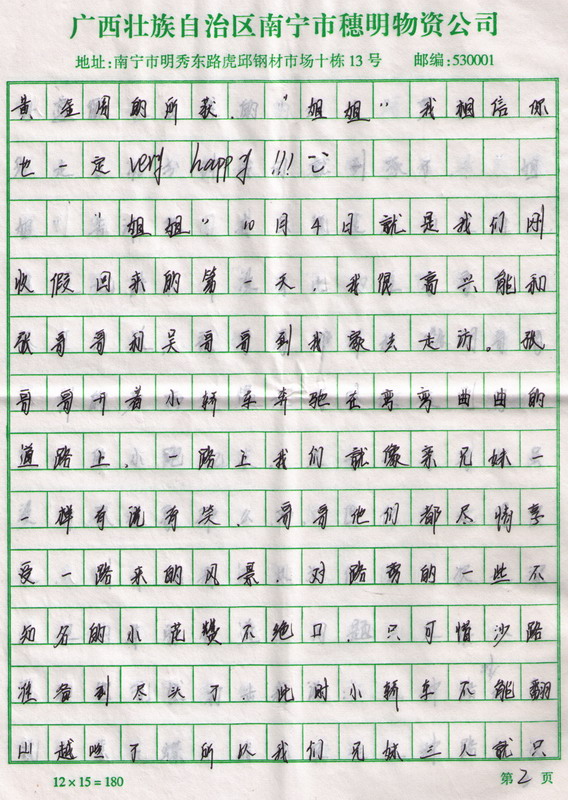 广西壮族自治区南宁市穗明物资公司
地址:南宁市明秀东路虎邱钢材市场十栋13号 邮编:530001
黄金周的所获,“姐姐”我相信你
也一定very happy!!!
“姐姐”10月4日就是我们刚
收假回来的第一天,我很高兴能和
张哥哥和吴哥哥到我家去走访。张
哥哥开着小轿车奔驰在弯弯曲曲的
道路上,一路上我们就像亲兄妹一
一样有说有笑,哥哥他们都尽情享
受一路来的风景,对路旁的一些不
知名的小花赞不绝口,只可惜沙路
准备到尽头了,此时小轿车不能翻
山越 了 所以我们兄妹三人就只
12×15=180 第2页